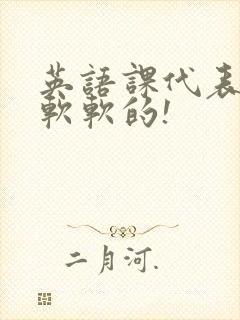 英語課代表
軟軟的!
二月河.